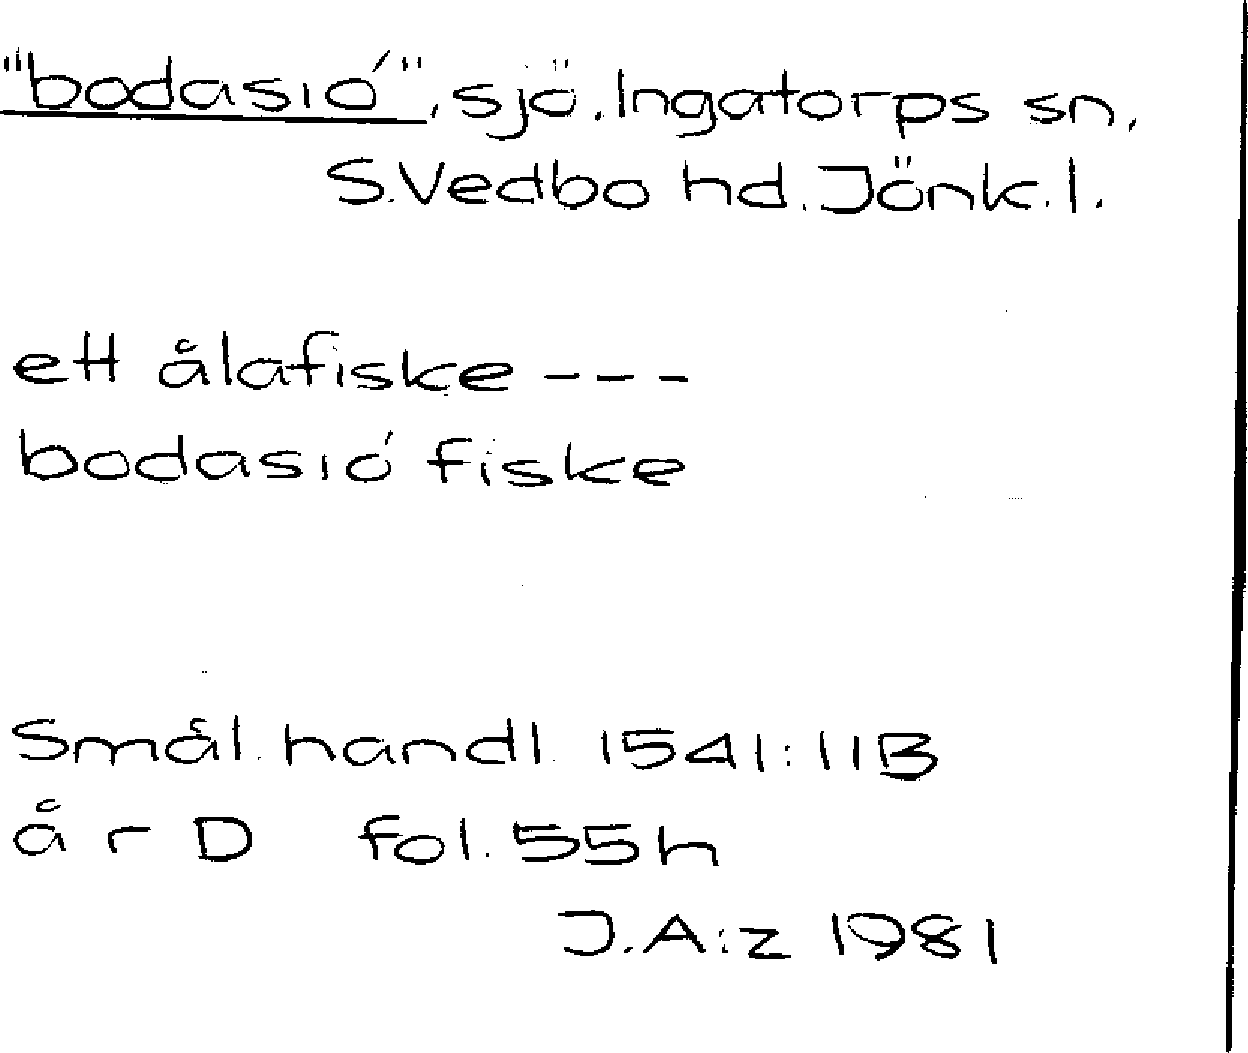 "bodasió", sjö. Ingatorps sn,
S.Vedbo hd. Jönk.l.
ett ålafiske ---
bodasió fiske
Smål. handl. 1541:11B
år D fol. 55h
J.A:z 1981